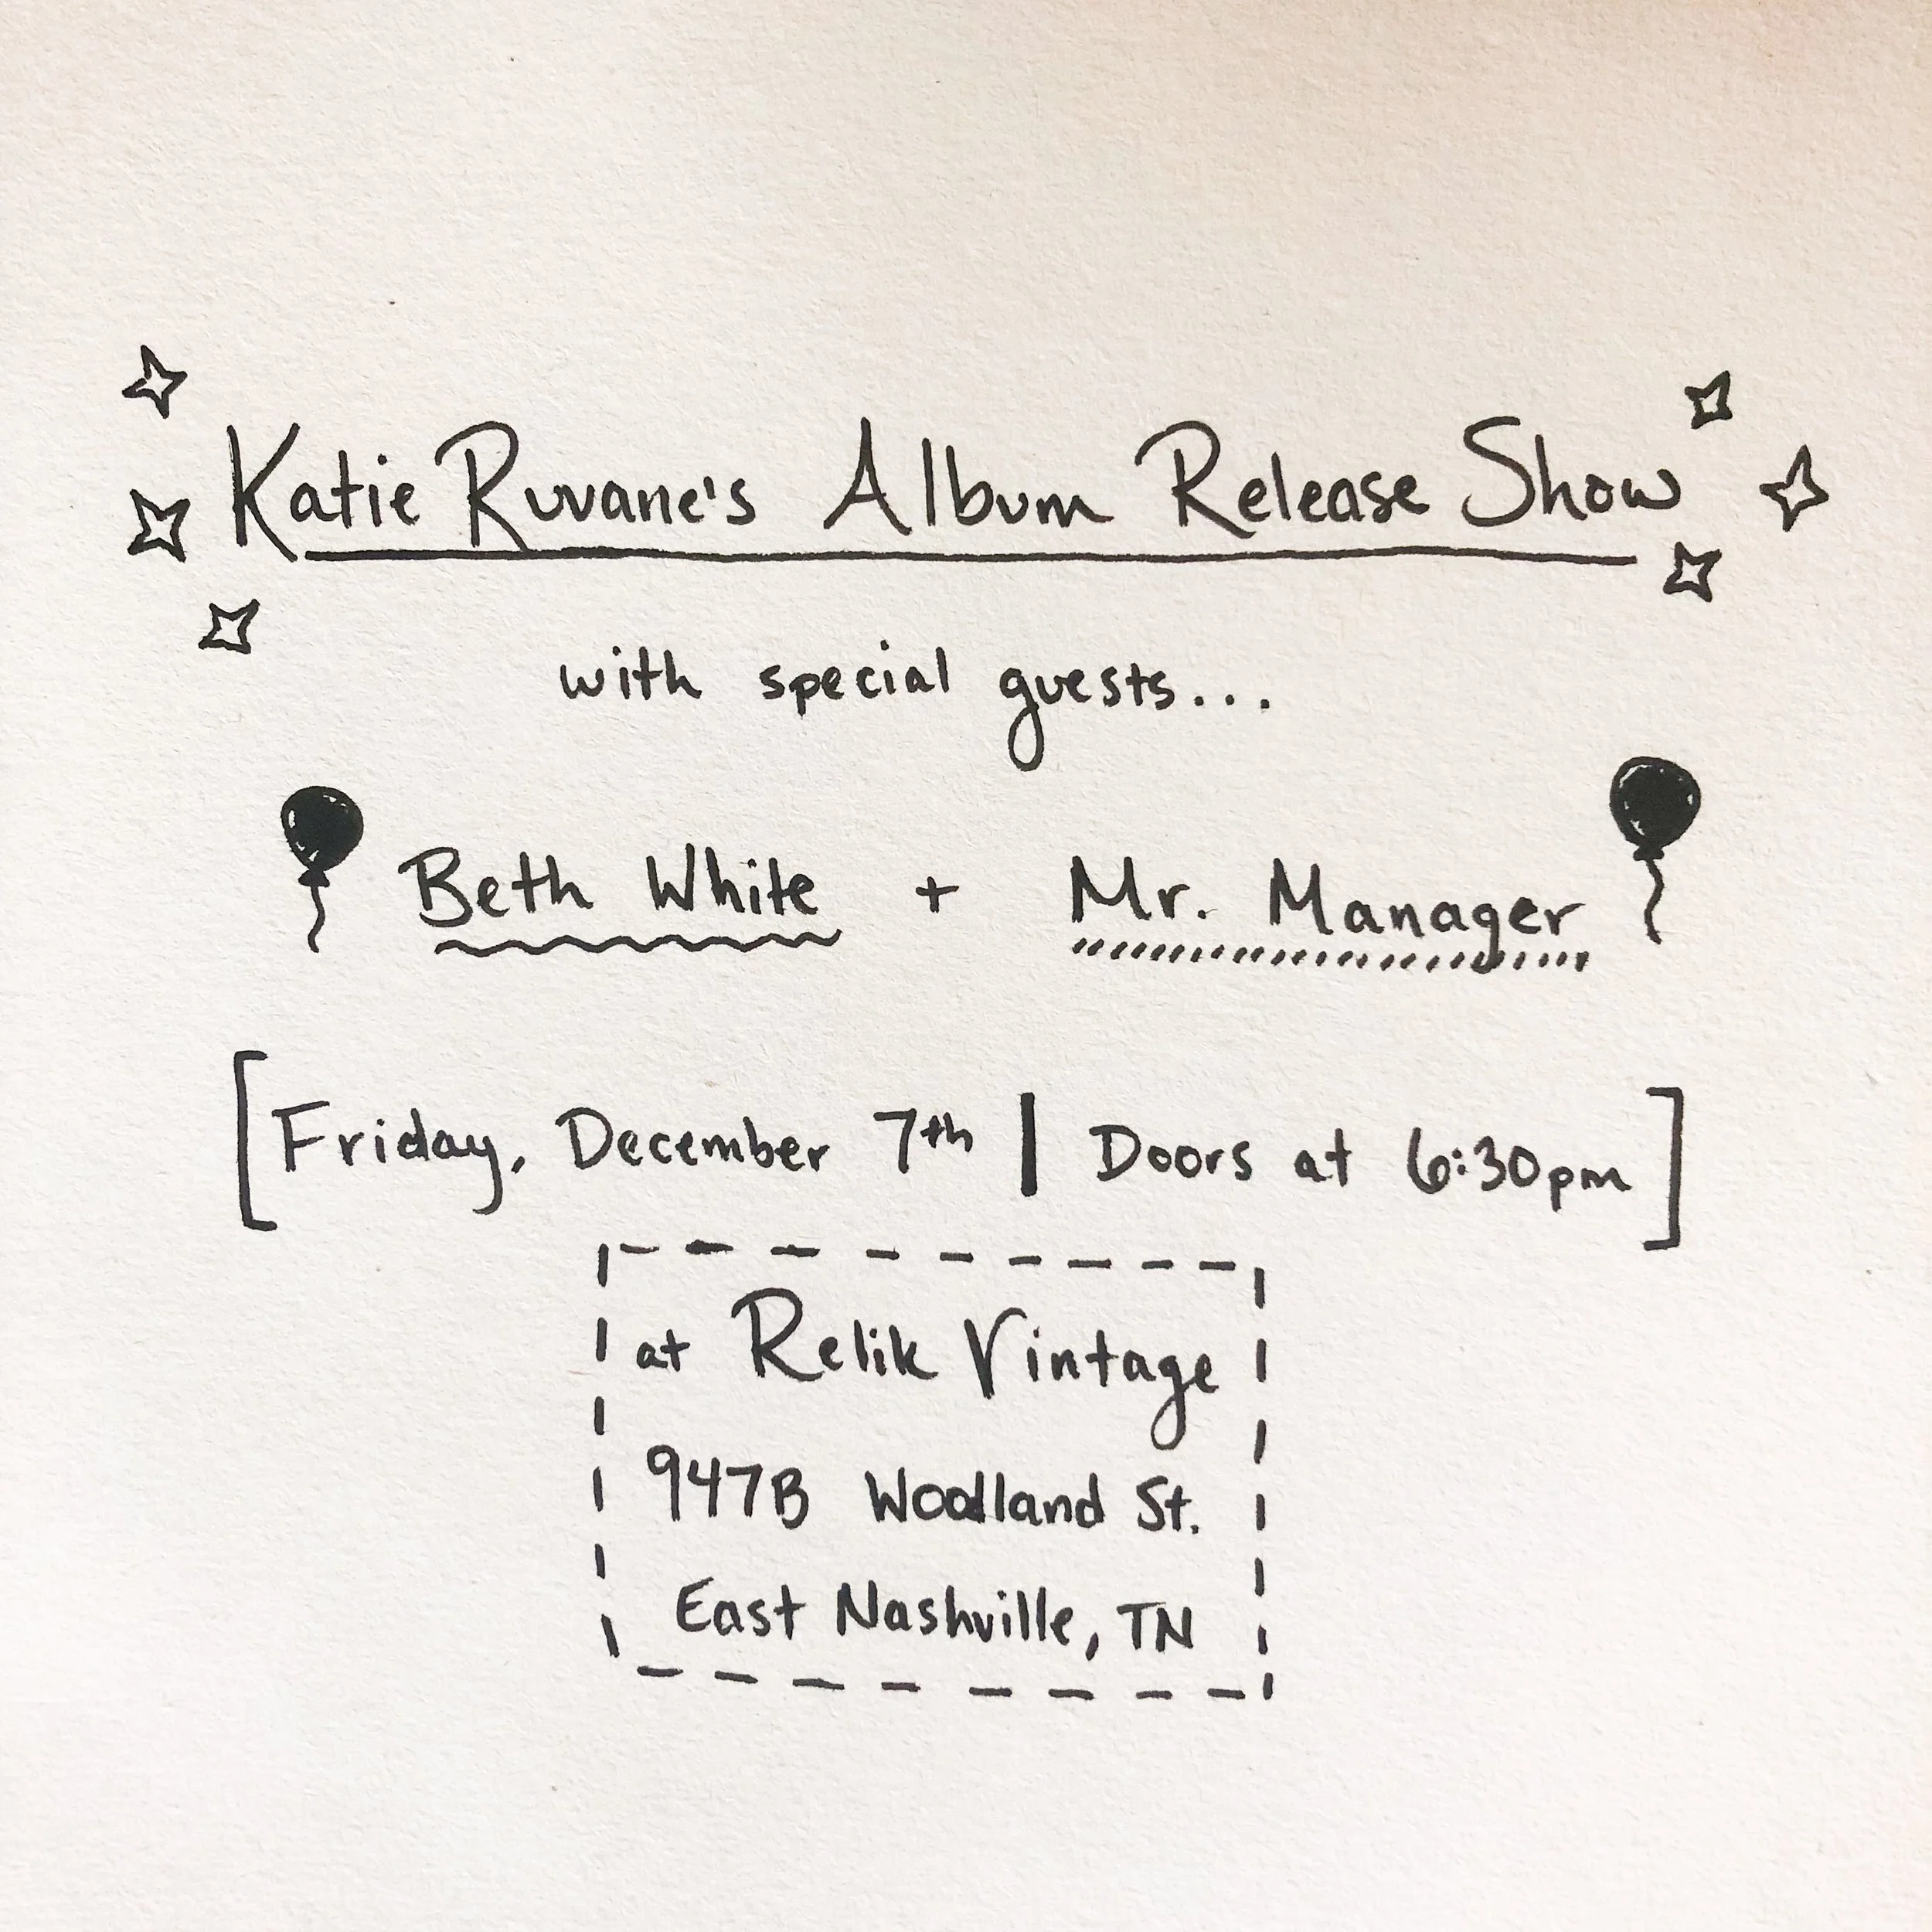 Katie Ruvane's Album Release Show
with special guests...
Beth White + Mr. Manager
[Friday, December 7th | Doors at 6:30pm]
at Relik Vintage
947B Woodland St.
East Nashville, TN